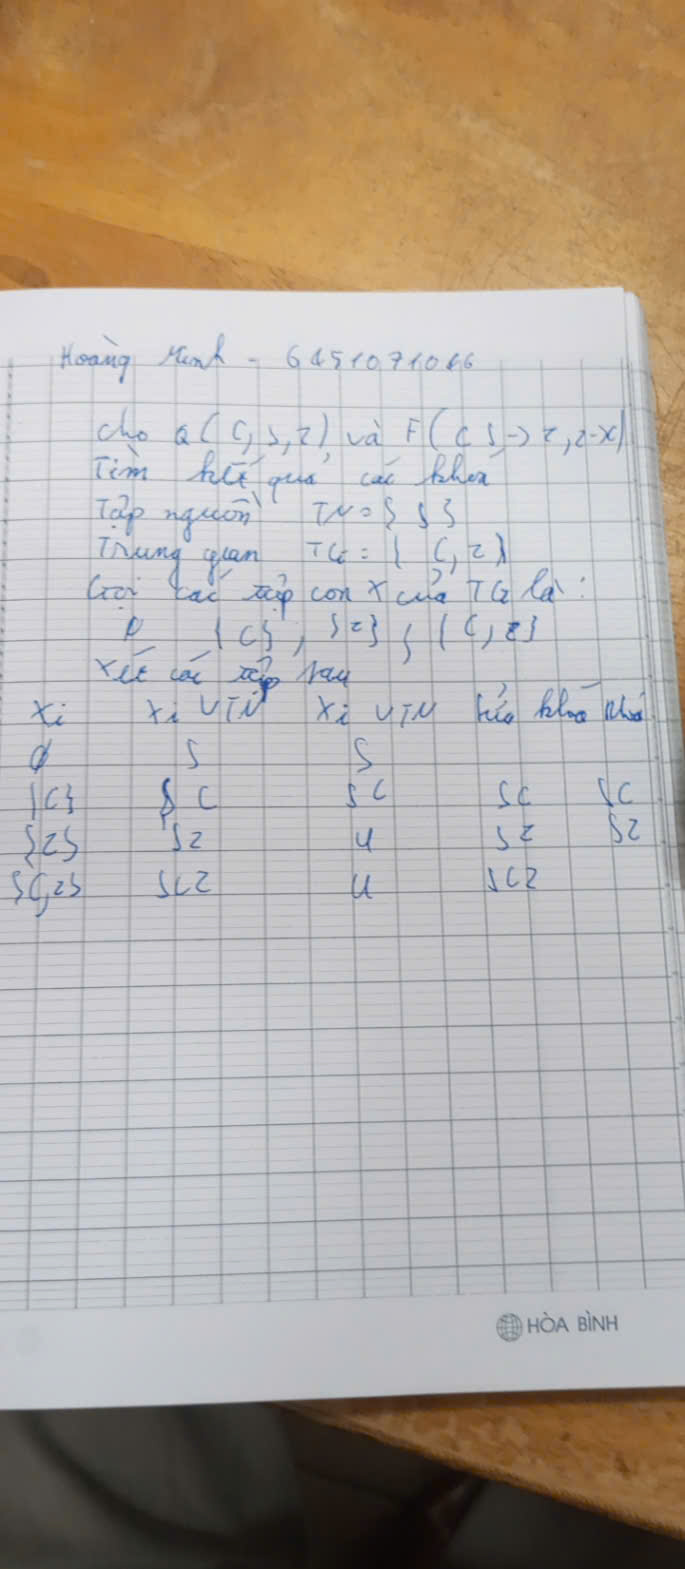 Hoàng Minh - 6451071046
cho Q(C, S, Z) và F(CS -> Z, Z -> X)
Tìm kết quả các khoá
Tập nguồn TN = {S}
Trung gian TG = {C, Z}
Gọi các tập con X của TG là:
∅ {C}, {Z}, {C, Z}
Xét các tập sau
Xi Xi U TN Xi U TN siêu khoá khoá
∅ S S
{C} SC SC SC SC
{Z} SZ U SZ SZ
{C,Z} SCZ U SCZ
HÒA BÌNH